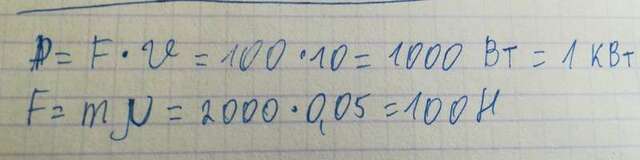 P = F · υ = 100 · 10 = 1000 Вт = 1 кВт
F = m μ = 2000 · 0,05 = 100 Н